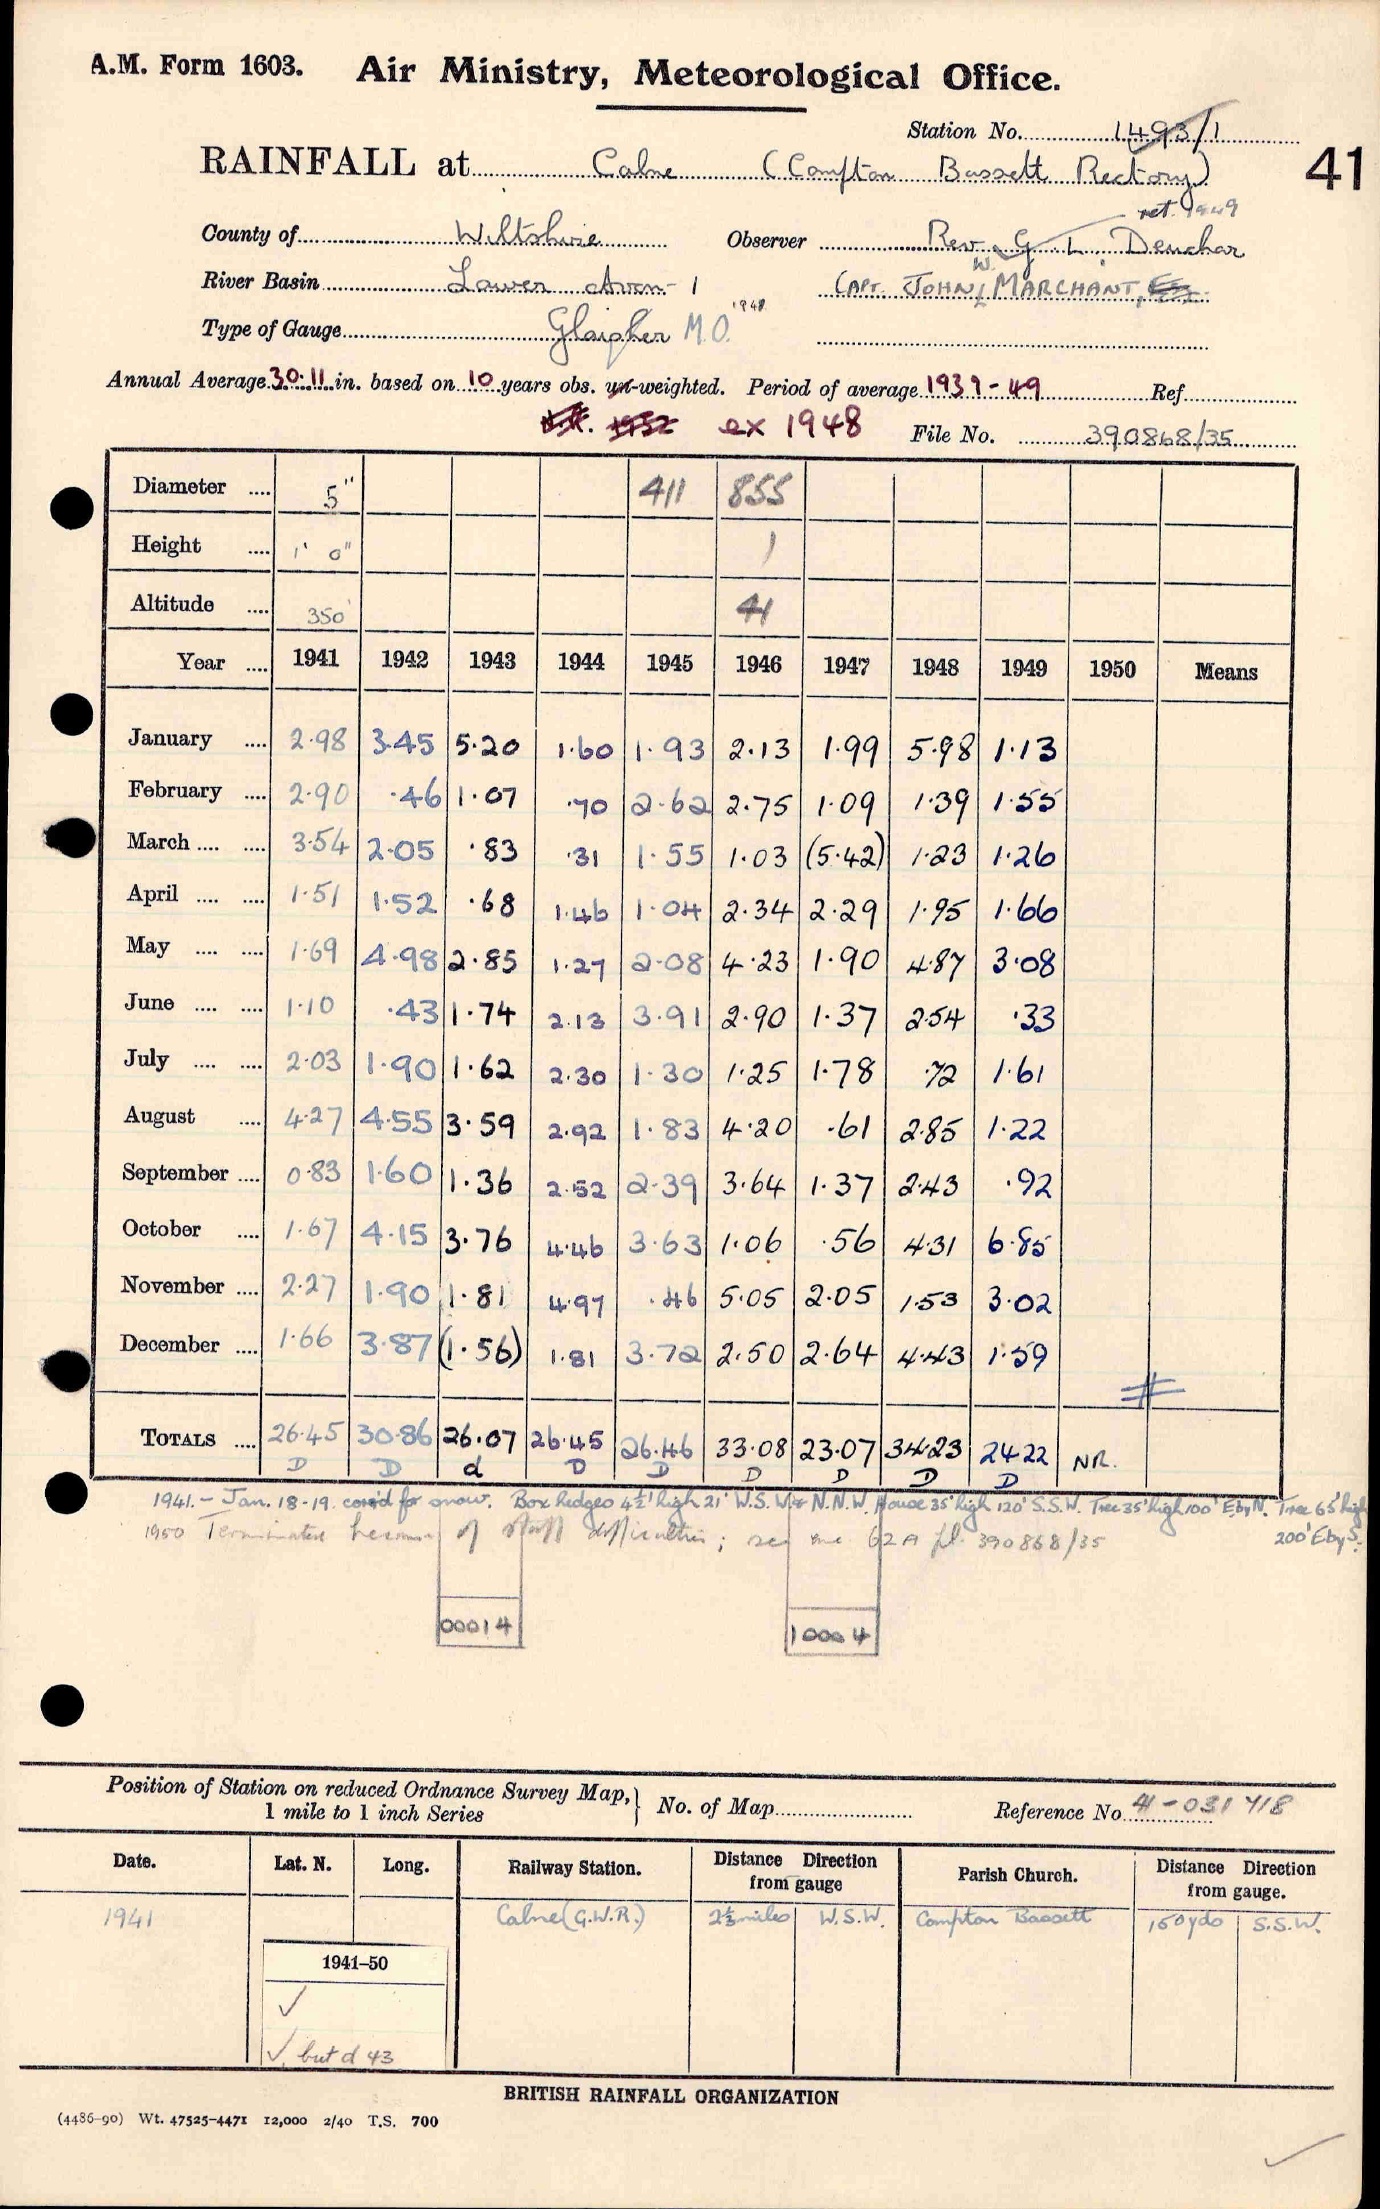 A.M. Form 1603. Air Ministry, Meteorological Office.
Station No. 1493/1
RAINFALL at Calne (Compton Bassett Rectory)
41
ret. 1949
County of Wiltshire Observer Rev. G. L. Deuchar
River Basin Lower Avon - 1 CAPT. JOHN W. MARCHANT,
Type of Gauge Glaisher M.O. 1948
Annual Average 30.11 in. based on 10 years obs. un-weighted. Period of average 1939-49 Ref
ex 1948 File No. 390868/35
Diameter .... 5" 411 855
Height .... 1' 0" 1
Altitude .... 350' 41
Year .... 1941 1942 1943 1944 1945 1946 1947 1948 1949 1950 Means
January .... 2.98 3.45 5.20 1.60 1.93 2.13 1.99 5.98 1.13
February .... 2.90 .46 1.07 .70 2.62 2.75 1.09 1.39 1.55
March .... .... 3.54 2.05 .83 .31 1.55 1.03 (5.42) 1.23 1.26
April .... .... 1.51 1.52 .68 1.46 1.04 2.34 2.29 1.95 1.66
May .... .... 1.69 4.98 2.85 1.27 2.08 4.23 1.90 4.87 3.08
June .... .... 1.10 .43 1.74 2.13 3.91 2.90 1.37 2.54 .33
July .... .... 2.03 1.90 1.62 2.30 1.30 1.25 1.78 .72 1.61
August .... 4.27 4.55 3.59 2.92 1.83 4.20 .61 2.85 1.22
September .... 0.83 1.60 1.36 2.52 2.39 3.64 1.37 2.43 .92
October .... 1.67 4.15 3.76 4.46 3.63 1.06 .56 4.31 6.85
November .... 2.27 1.90 1.81 4.97 .46 5.05 2.05 1.53 3.02
December .... 1.66 3.87 (1.56) 1.81 3.72 2.50 2.64 4.43 1.59
TOTALS .... 26.45 30.86 26.07 26.45 26.46 33.08 23.07 34.23 24.22 NR.
D D d D D D D D D
1941.- Jan. 18-19. corr'd for snow. Box hedges 4½' high 21' W.S.W & N.N.W. House 35' high 120' S.S.W. Tree 35' high 100' E by N. Tree 65' high
200' E by S.
1950 Terminated because of staff difficulties; see me 62A fl. 390868/35
00014 10004
Position of Station on reduced Ordnance Survey Map,
1 mile to 1 inch Series
No. of Map Reference No. 41-031718
Date. Lat. N. Long. Railway Station. Distance Direction from gauge Parish Church. Distance Direction from gauge.
1941 Calne (G.W.R.) 2⅓ miles W.S.W. Compton Bassett 150 yds S.S.W.
1941-50
✓
✓ but d 43
BRITISH RAINFALL ORGANIZATION
(4486-90) Wt. 47525-4471 12,000 2/40 T.S. 700